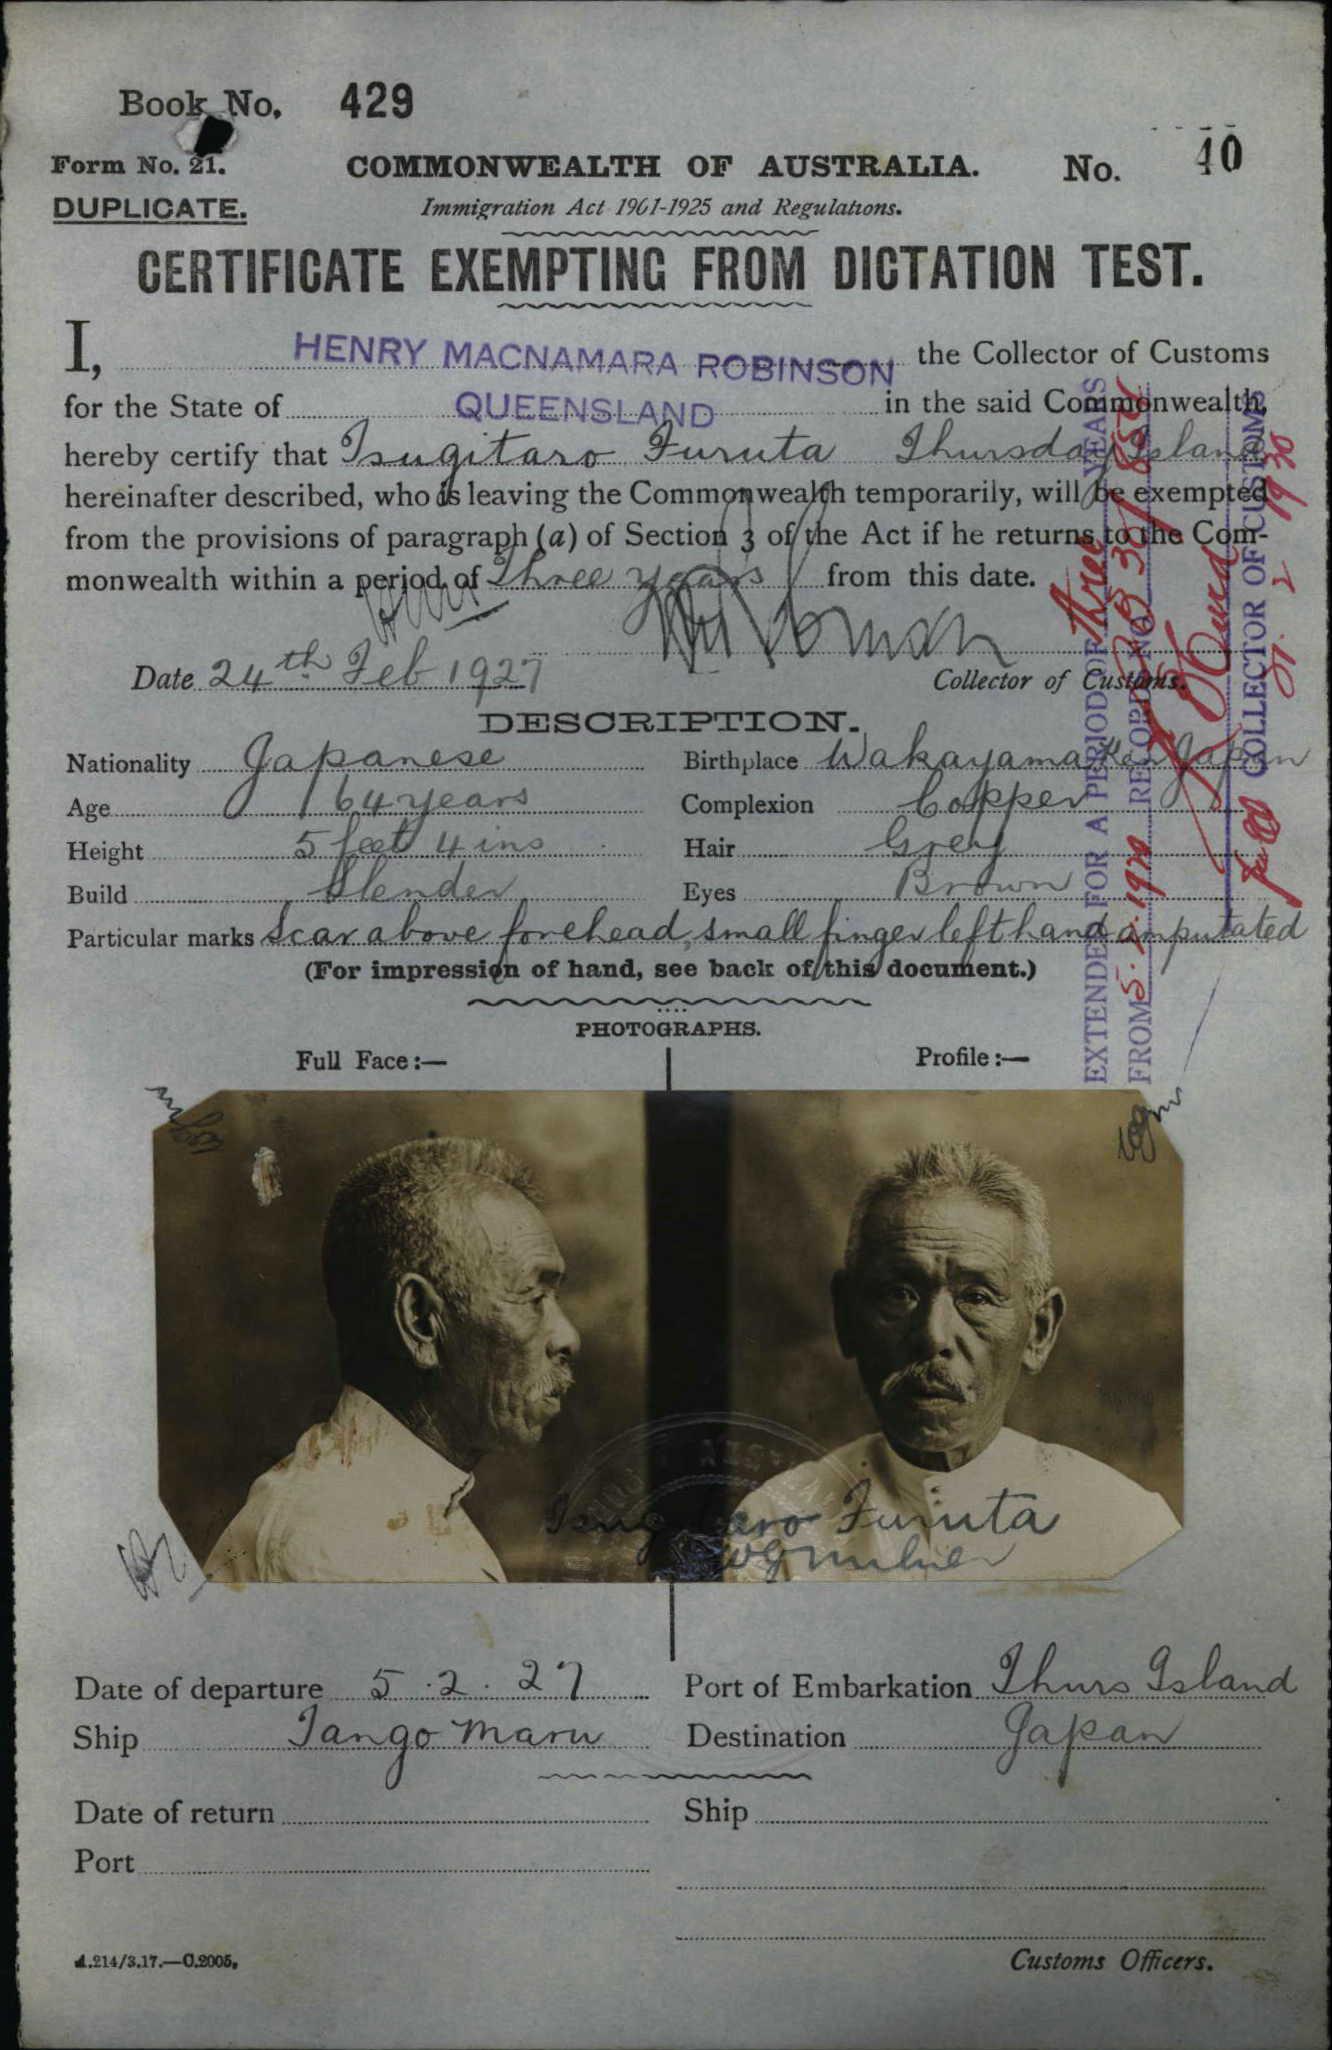 Book No. 429
Form No. 21.
COMMONWEALTH OF AUSTRALIA.
No. 40
DUPLICATE.
Immigration Act 1901-1925 and Regulations.
CERTIFICATE EXEMPTING FROM DICTATION TEST.
I, HENRY MACNAMARA ROBINSON the Collector of Customs
for the State of QUEENSLAND in the said Commonwealth,
hereby certify that Tsugitaro Furuta Thursday Island
hereinafter described, who is leaving the Commonwealth temporarily, will be exempted
from the provisions of paragraph (a) of Section 3 of the Act if he returns to the Com-
monwealth within a period of Three years from this date.
Date 24th Feb 1927
Collector of Customs.
DESCRIPTION.
Nationality Japanese
Birthplace Wakayama Ken Japan
Age 64 years
Complexion Copper
Height 5 feet 4 ins
Hair Grey
Build Slender
Eyes Brown
Particular marks Scar above forehead, small finger left hand amputated
(For impression of hand, see back of this document.)
PHOTOGRAPHS.
Full Face:—
Profile:—
EXTENDED FOR A PERIOD OF three YEARS
FROM RECORD NO
COLLECTOR OF CUSTOMS
Tsugitaro Furuta
Date of departure 5.2.27
Port of Embarkation Thurs Island
Ship Tango Maru
Destination Japan
Date of return
Ship
Port
A.214/3.17.—C.2005.
Customs Officers.